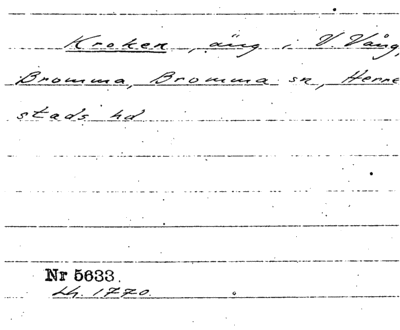 Kroken, äng i V. Vång,
Bromma, Bromma sn, Herre
stads hd
Nr 5633.
Lh. 1770.